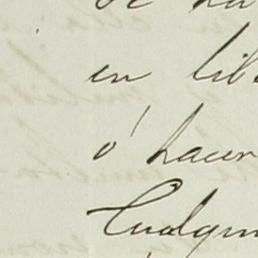 en lib
ó hacer
Cualqui